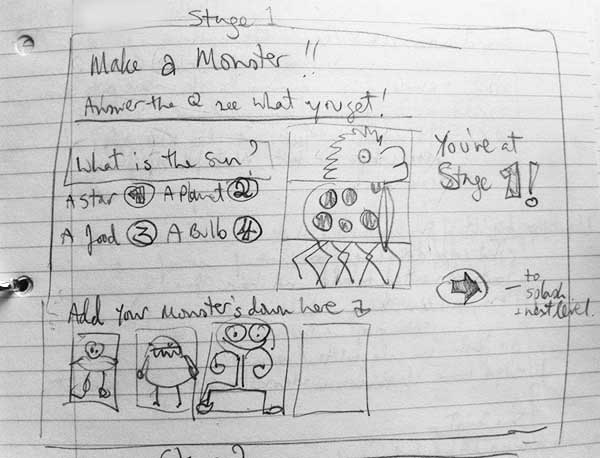 Stage 1
Make a Monster!!
Answer the Q see what you get!
What is the Sun?
A Star 1 A Planet 2
A food 3 A Bulb 4
You're at
Stage 1!
to
splash
next level.
Add your Monster's down here